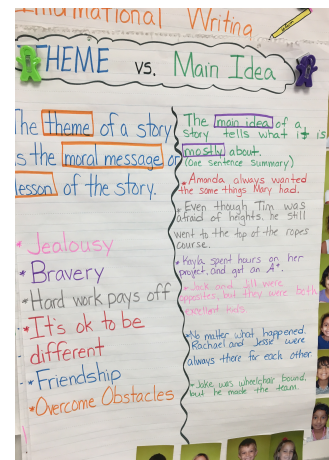 Informational Writing
THEME vs. Main Idea
The theme of a story
is the moral message or
lesson of the story.
* Jealousy
* Bravery
* Hard work pays off
* It's ok to be
different
* Friendship
* Overcome Obstacles
The main idea of a
story tells what it is
mostly about.
(One sentence summary)
* Amanda always wanted
the same things Mary had.
Even though Tim was
afraid of heights, he still
went to the top of the ropes
course.
* Kayla spent hours on her
project, and got an A+.
* Jack and Jill were
opposites, but they were both
excellent kids
* No matter what happened,
Rachael and Jessie were
always there for each other
* Jake was wheelchair bound,
but he made the team.